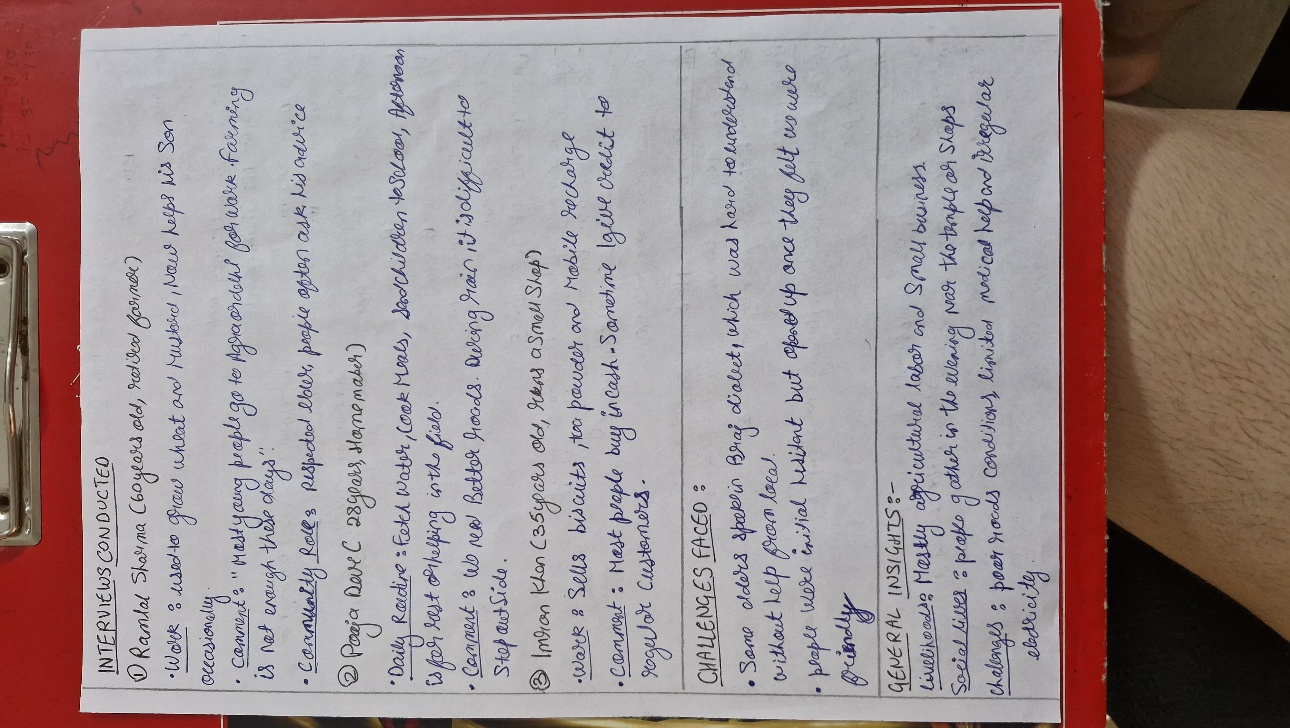 INTERVIEWS CONDUCTED
① Ramlal Sharma (60 years old, retired farmer)
• Work : used to grow wheat and Mustard, Now helps his Son
occasionally.
• Comment : "Most young people go to Agra or delhi for work. Farming
is not enough these days".
• Community Role : respected elder, people often ask his advice
② Pooja Devi ( 28 years, Homemaker)
• Daily Routine : Fetch Water, Cook Meals, Send children to School, Afternoon
is for rest or helping in the field.
• Comment : we need Better roads. During rain it is difficult to
Step out Side.
③ Imran Khan (35 years old, runs a Small Shop)
• Work : Sells biscuits, tea powder and Mobile recharge
• Comment : Most people buy in cash. Sometime I give credit to
regular Customers.
CHALLENGES FACED :
• Some elders speak in Braj dialect, which was hard to understand
without help from local.
• people were initial hesitant but opened up once they felt we were
friendly
GENERAL INSIGHTS :-
livelihoods : Mostly agricultural labor and Small business
Social lives : people gather in the evening near the temple or Shops
challenges : poor roads conditions, limited medical help and irregular
electricity.